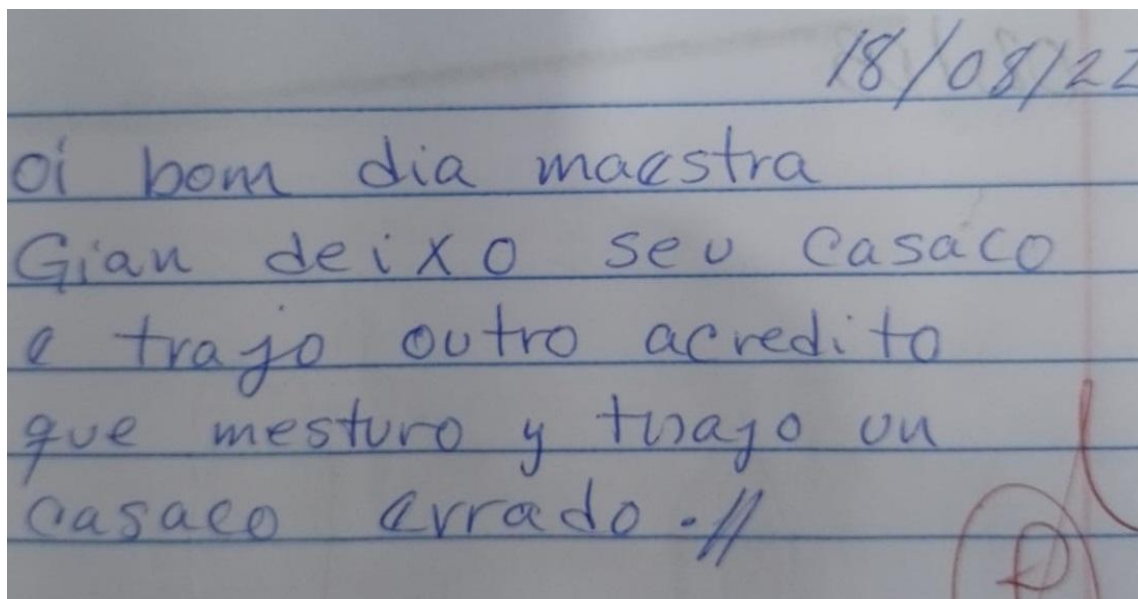 18/08/22
oi bom dia maestra
Gian deixo seu casaco
e trajo outro acredito
que mesturo y trajo un
casaco errado.//